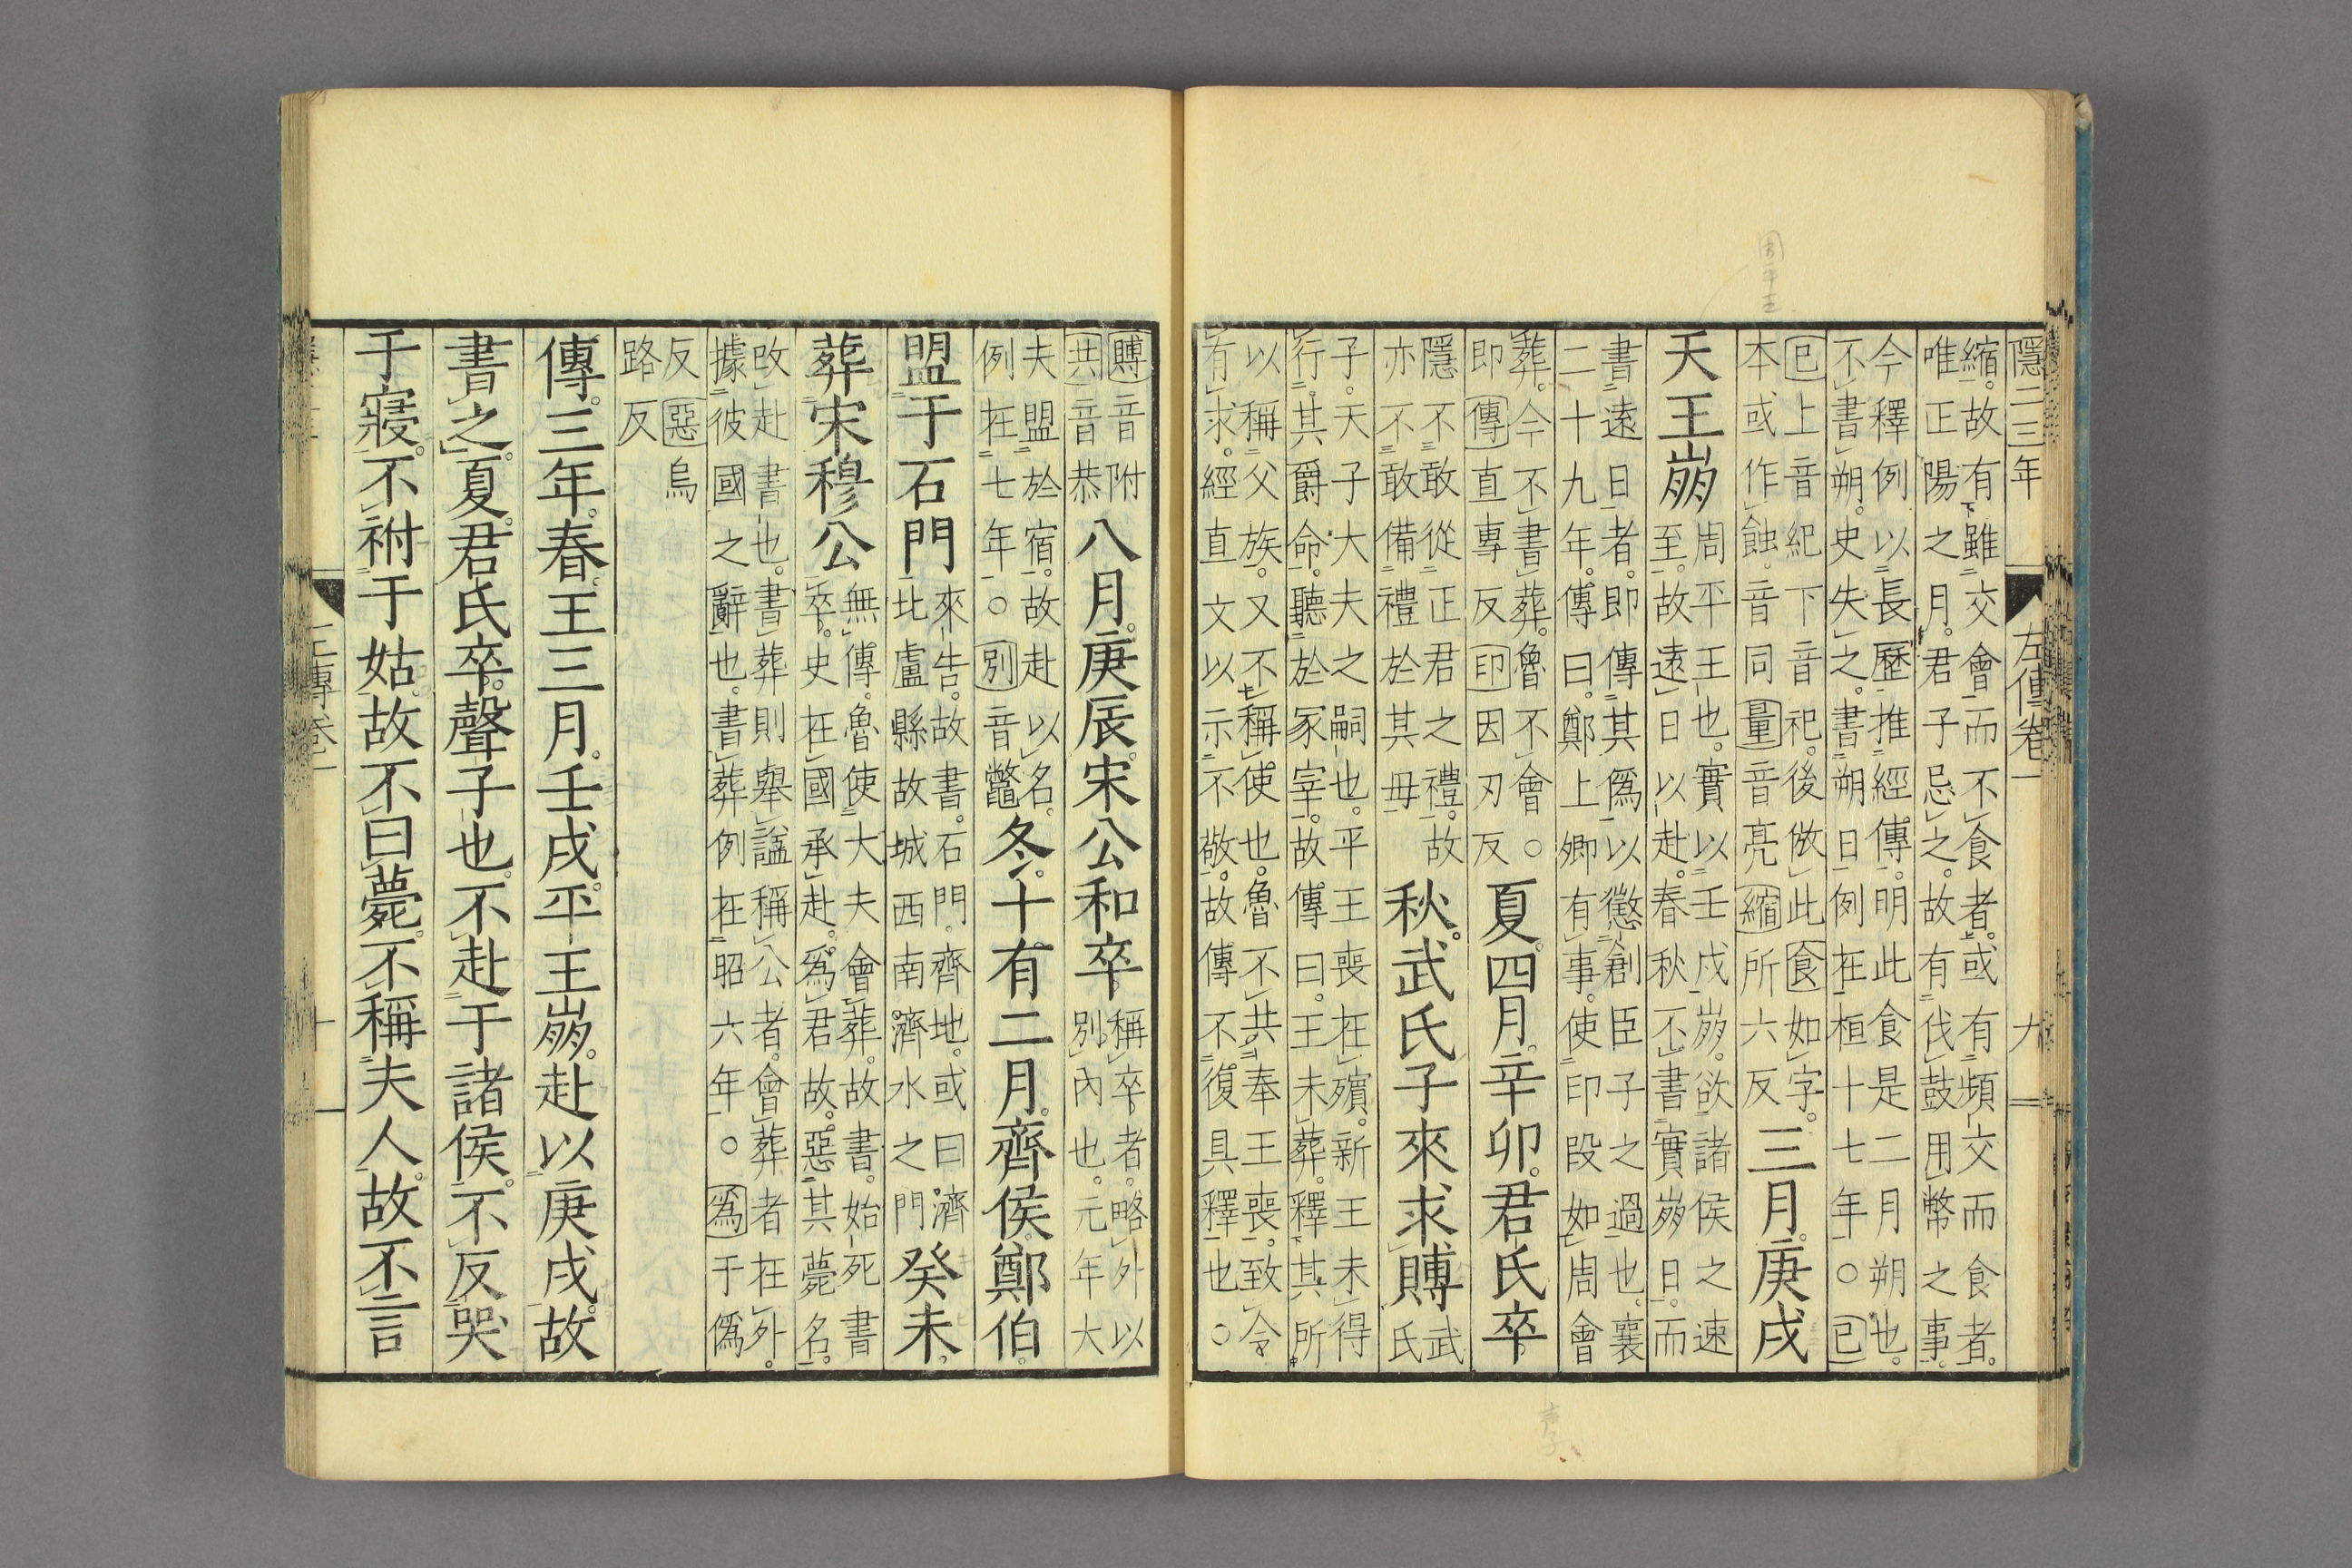 周平王
隱二三年
左傳卷一
九
縮。故有雖交會而不食者。或有頻交而食者。
唯正陽之月。君子忌之。故有伐鼓用幣之事。
今釋例以長歷推經傳。明此食是二月朔也。
不書朔。史失之。書朔日例在桓十七年○已
已上音紀下音祀。後倣此食如字。
本或作蝕。音同量音亮縮所六反
三月。庚戌
天王崩
周平王也。實以壬戌崩。欲諸侯之速
至。故遠日以赴。春秋不書實崩日。而
書遠日者。即傳其僞以懲創臣子之過也。襄
二十九年。傳曰。鄭上卿有事。使印段如周會
葬。今不書葬。魯不會。○
即傳直專反印因刃反
夏。四月。辛卯。君氏卒。
隱不敢從正君之禮。故
亦不敢備禮於其毋
秋。武氏子來求賻
武
氏
子。天子大夫之嗣也。平王喪在殯。新王未得
行其爵命。聽於冢宰。故傳曰。王未葬。釋其所
以稱父族。又不稱使也。魯不共奉王喪。致令
有求。經直文以示不敬。故傳不復具釋也○
賻音附
共音恭
八月。庚辰。宋公和卒。
稱卒者。略外以
別內也。元年大
夫盟於宿。故赴以名。
例在七年○別音鼈
冬。十有二月。齊侯。鄭伯。
盟于石門
來告。故書。石門。齊地。或曰濟
北盧縣故城西南濟水之門
癸未。
葬宋穆公
無傳。魯使大夫會葬。故書。始死書
卒。史在國承赴。爲君故。惡其薨名。
改赴書也。書葬則舉謚稱公者。會葬者在外。
據彼國之辭也。書葬例在昭六年○爲于僞
反惡烏
路反
傳。三年。春。王三月。壬戌。平王崩。赴以庚戌。故
書之。夏。君氏卒。聲子也。不赴于諸侯。不反哭
于寢。不祔于姑。故不曰薨。不稱夫人。故不言